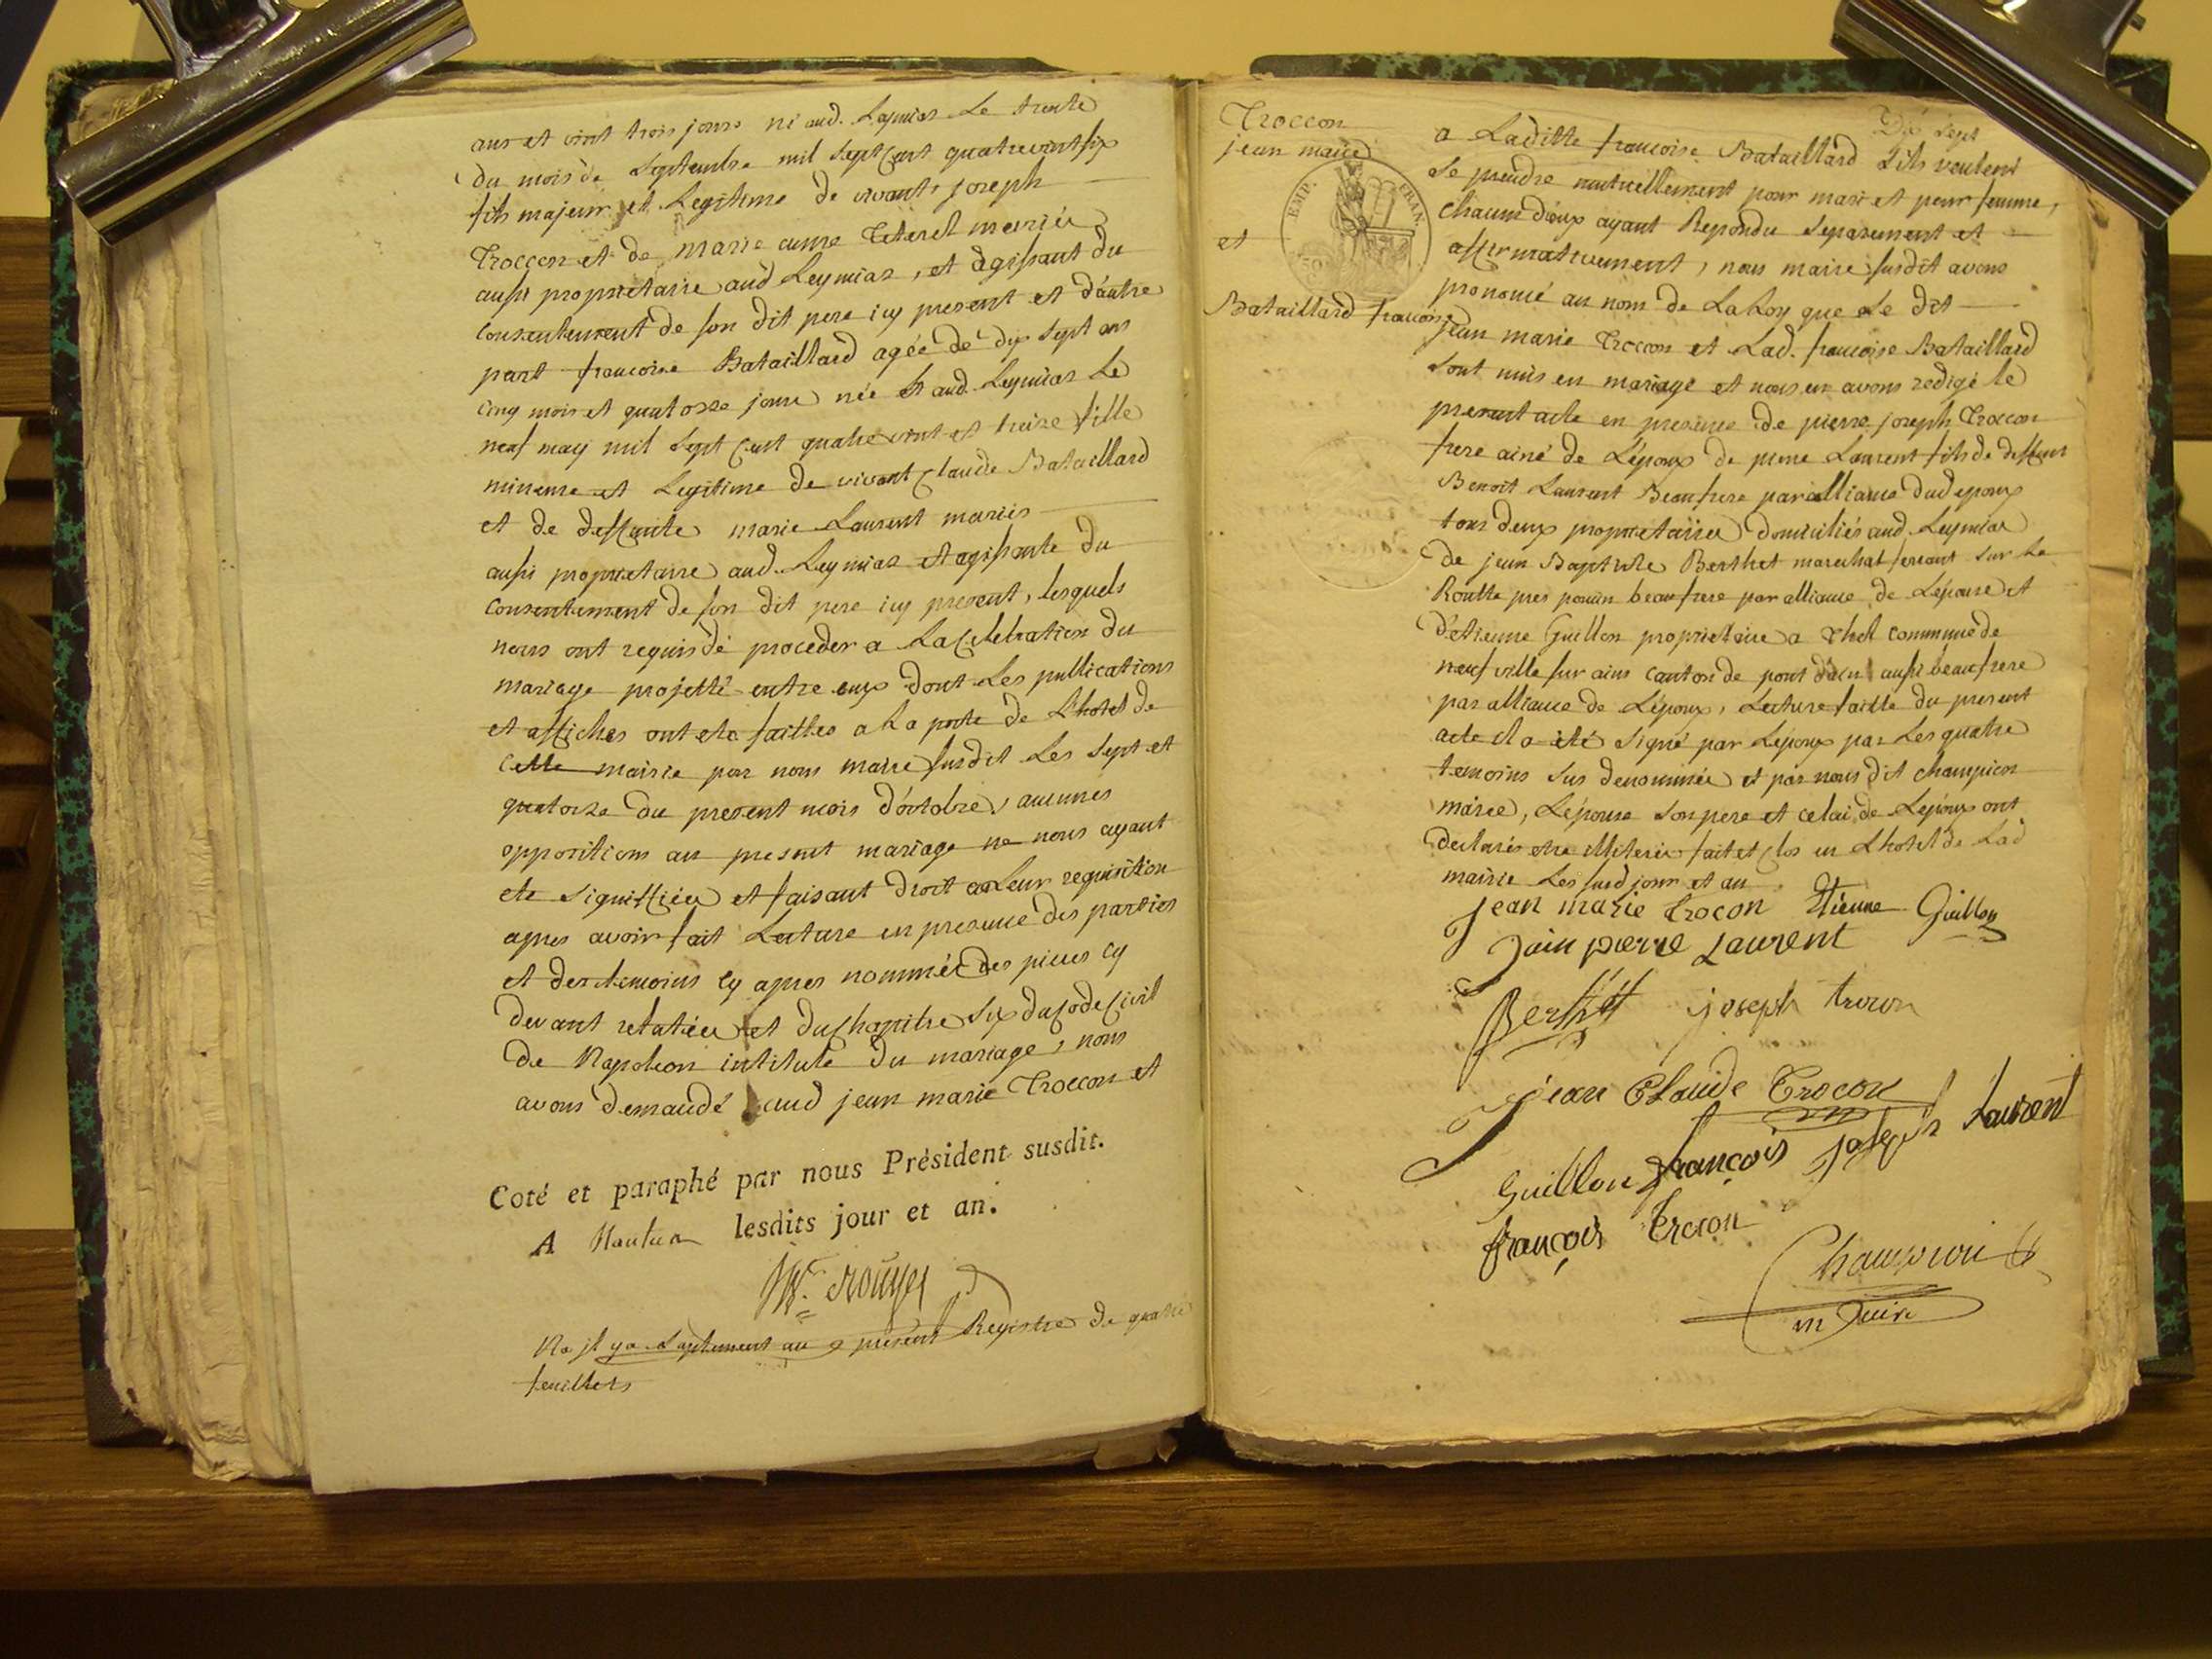 ans et vint trois jours né aud. Leymiar Le trente
du mois de Septembre mil sept cent quatrevint six
fils majeur et Legitime de vivants joseph
Troccon et de marie anne Teterel mariés
aussi proprietaire aud Leymiar, et agissant du
consentement de son dit pere icy present et d'autre
part francoise Bataillard agée de dix sept ans
cinq mois et quatorze jours née aud. Leymiar Le
neuf may mil sept cent quatrevint et treize fille
mineure et Legitime de vivant Claude Bataillard
et de deffunte marie Laurent mariés
aussi proprietaire aud. Leymiar et agissante du
consentement de son dit pere icy present, lesquels
nous ont requis de proceder a La Celebration du
mariage projetté entre eux dont Les publications
et affiches ont ete faittes a La porte de L'hotel de
Cette mairie par nous maire susdit Les sept et
quatorze du present mois d'octobre, aucunes
oppositions au present mariage ne nous ayant
ete signiffiées et faisant droit a Leur requisition
apres avoir fait Lecture en presence des parties
et des temoins cy apres nommés des pieces cy
devant relatées et du Chapitre six du Code Civil
de Napoleon intitulé du mariage, nous
avons demandé aud jean marie Troccon et
Coté et paraphé par nous Président susdit.
A Nantua lesdits jour et an.
Na jl y a seulement au present Registre de quatre
feuillets
Troccon
jean marie
et
Bataillard francoise
Dix sept
a Laditte francoise Bataillard s'ils veulent
se prendre mutuellement pour mari et pour femme,
chacun d'eux ayant Repondu separement et
affirmativement, nous maire susdit avons
prononcé au nom de La Loy que Le dit
jean marie Troccon et Lad. francoise Bataillard
sont unis en mariage et nous en avons redigé le
present acte en presence de pierre joseph Troccon
frere ainé de L'époux de pierre Laurent fils de deffunt
Benoit Laurent Beaufrere par alliance dud epoux
tous deux proprietaires domiciliés aud. Leymiar
de jean Baptiste Berthet marechal ferrant sur La
Routte pres poncin beaufrere par alliance de L'épouse et
d'etienne Guillon proprietaire a Thol commune de
neufville sur ains canton de pont d'ain aussi beaufrere
par alliance de L'époux, Lecture faitte du present
acte il a été signé par L'époux par Les quatre
temoins sus denommés et par nous dit champion
maire, L'épouse son pere et celui de L'epoux ont
declarés etre illiterés fait et clos en L'hotel de Lad
mairie Les susd jour et an
jean marie trocon Etienne Guillon
pierre Laurent
Berthet joseph trocon
jean Claude Trocon
Guillon françois joseph Laurent
françois Trocon
Champion
Maire
EMP. FRAN.